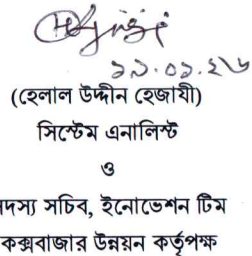 ১৯.০১.২৬
(হেলাল উদ্দীন হেজাযী)
সিস্টেম এনালিস্ট
ও
দস্য সচিব, ইনোভেশন টিম
কক্সবাজার উন্নয়ন কর্তৃপক্ষ